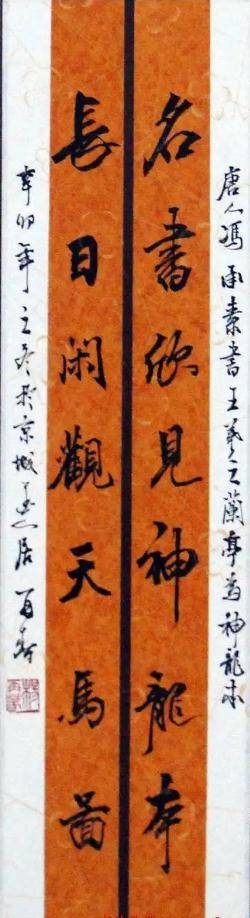 唐人馮承素書王羲之蘭亭為神龍本
名書欣見神龍本
長日閑觀天馬圖
辛卯年立冬於京城燕居百壽